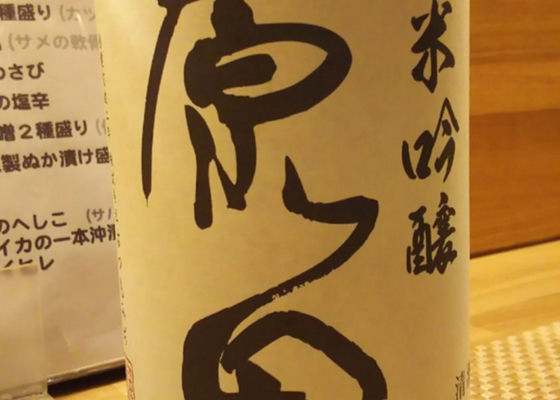 種盛り(カッ
(サメの軟骨
わさび
の塩辛
噌2種盛り(
製ぬか漬け盛
のへしこ (サバ
イカの一本沖漬
イヒレ
原田
米吟醸